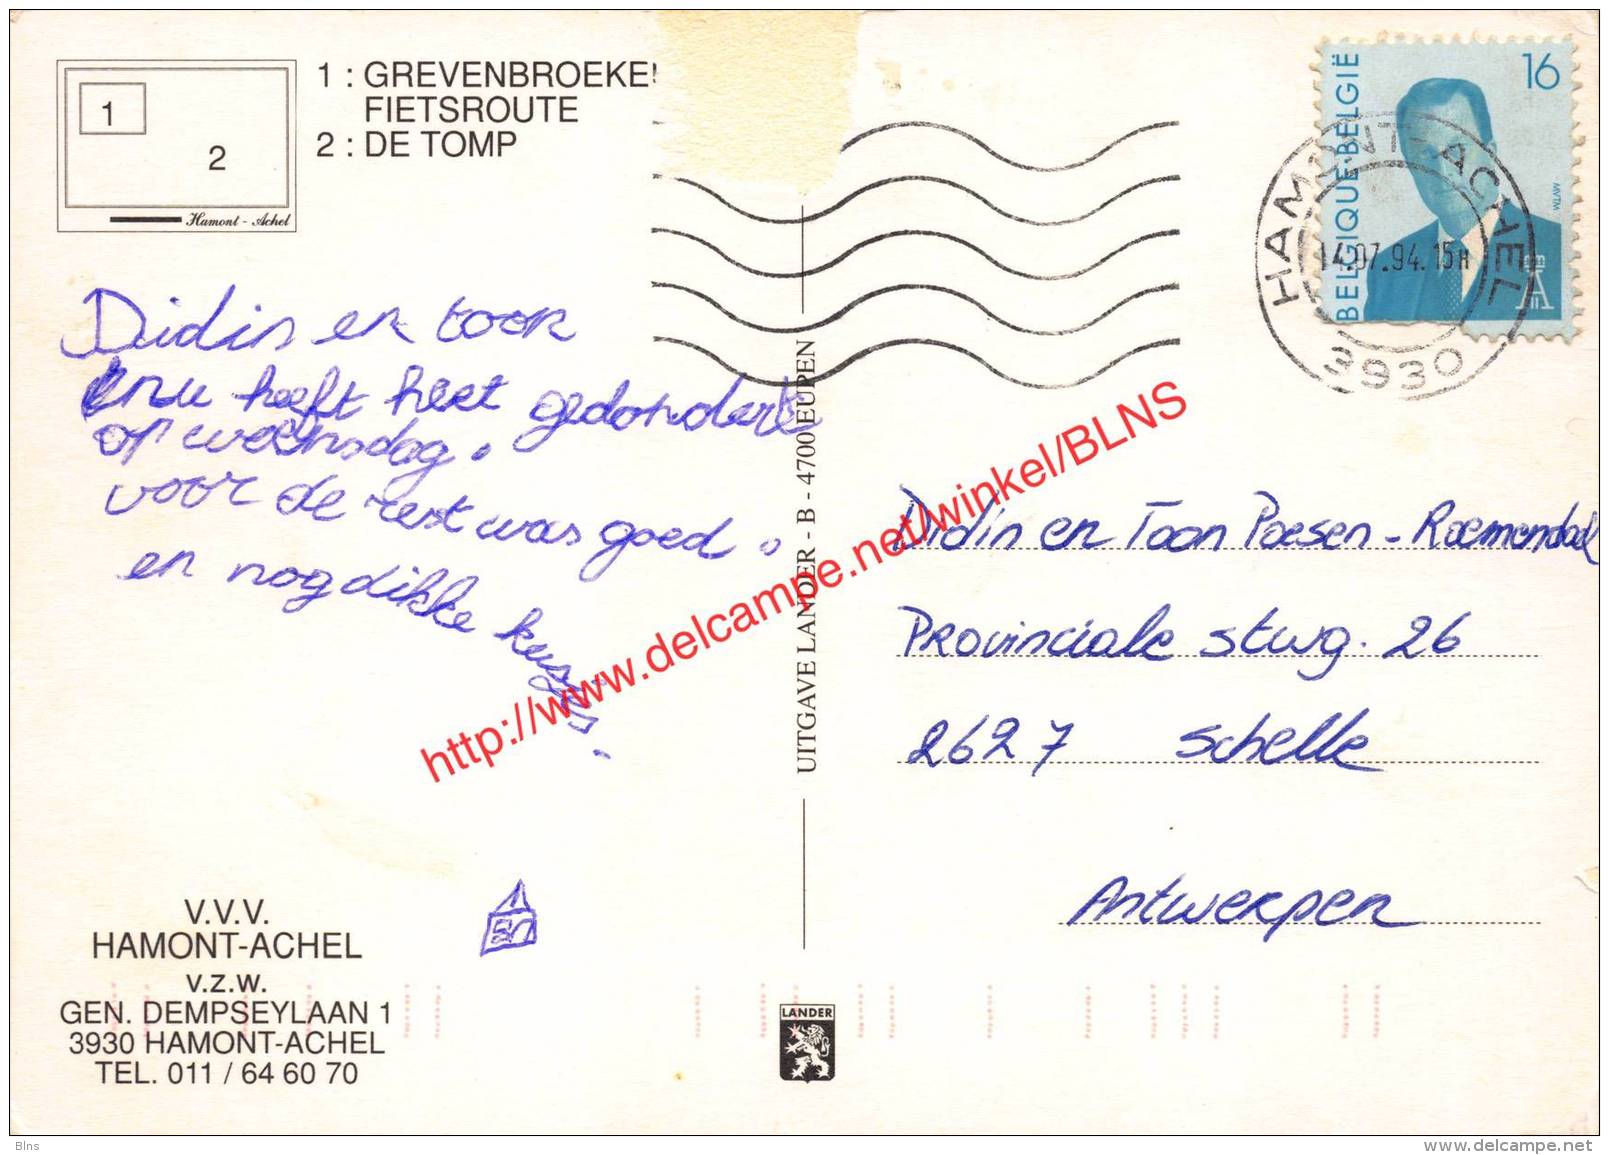 1
2
Hamont - Achel
1 : GREVENBROEKE
FIETSROUTE
2 : DE TOMP
BELGIQUE·BELGIË
16
MVTM
HAMONT-ACHEL
14.07.94.15H
3930
Didin en toon
nu heeft heet gedonderte
op woensdag.
voor de rest was goed.
en nog dikke kusjes.
En
UITGAVE LANDER - B - 4700 EUPEN
Didin en Toon Paesen - Roemendael
Provinciale stwg. 26
2627 Schelle
Antwerpen
V.V.V.
HAMONT-ACHEL
v.z.w.
GEN. DEMPSEYLAAN 1
3930 HAMONT-ACHEL
TEL. 011 / 64 60 70
LANDER
http://www.delcampe.net/winkel/BLNS
Blns
www.delcampe.net